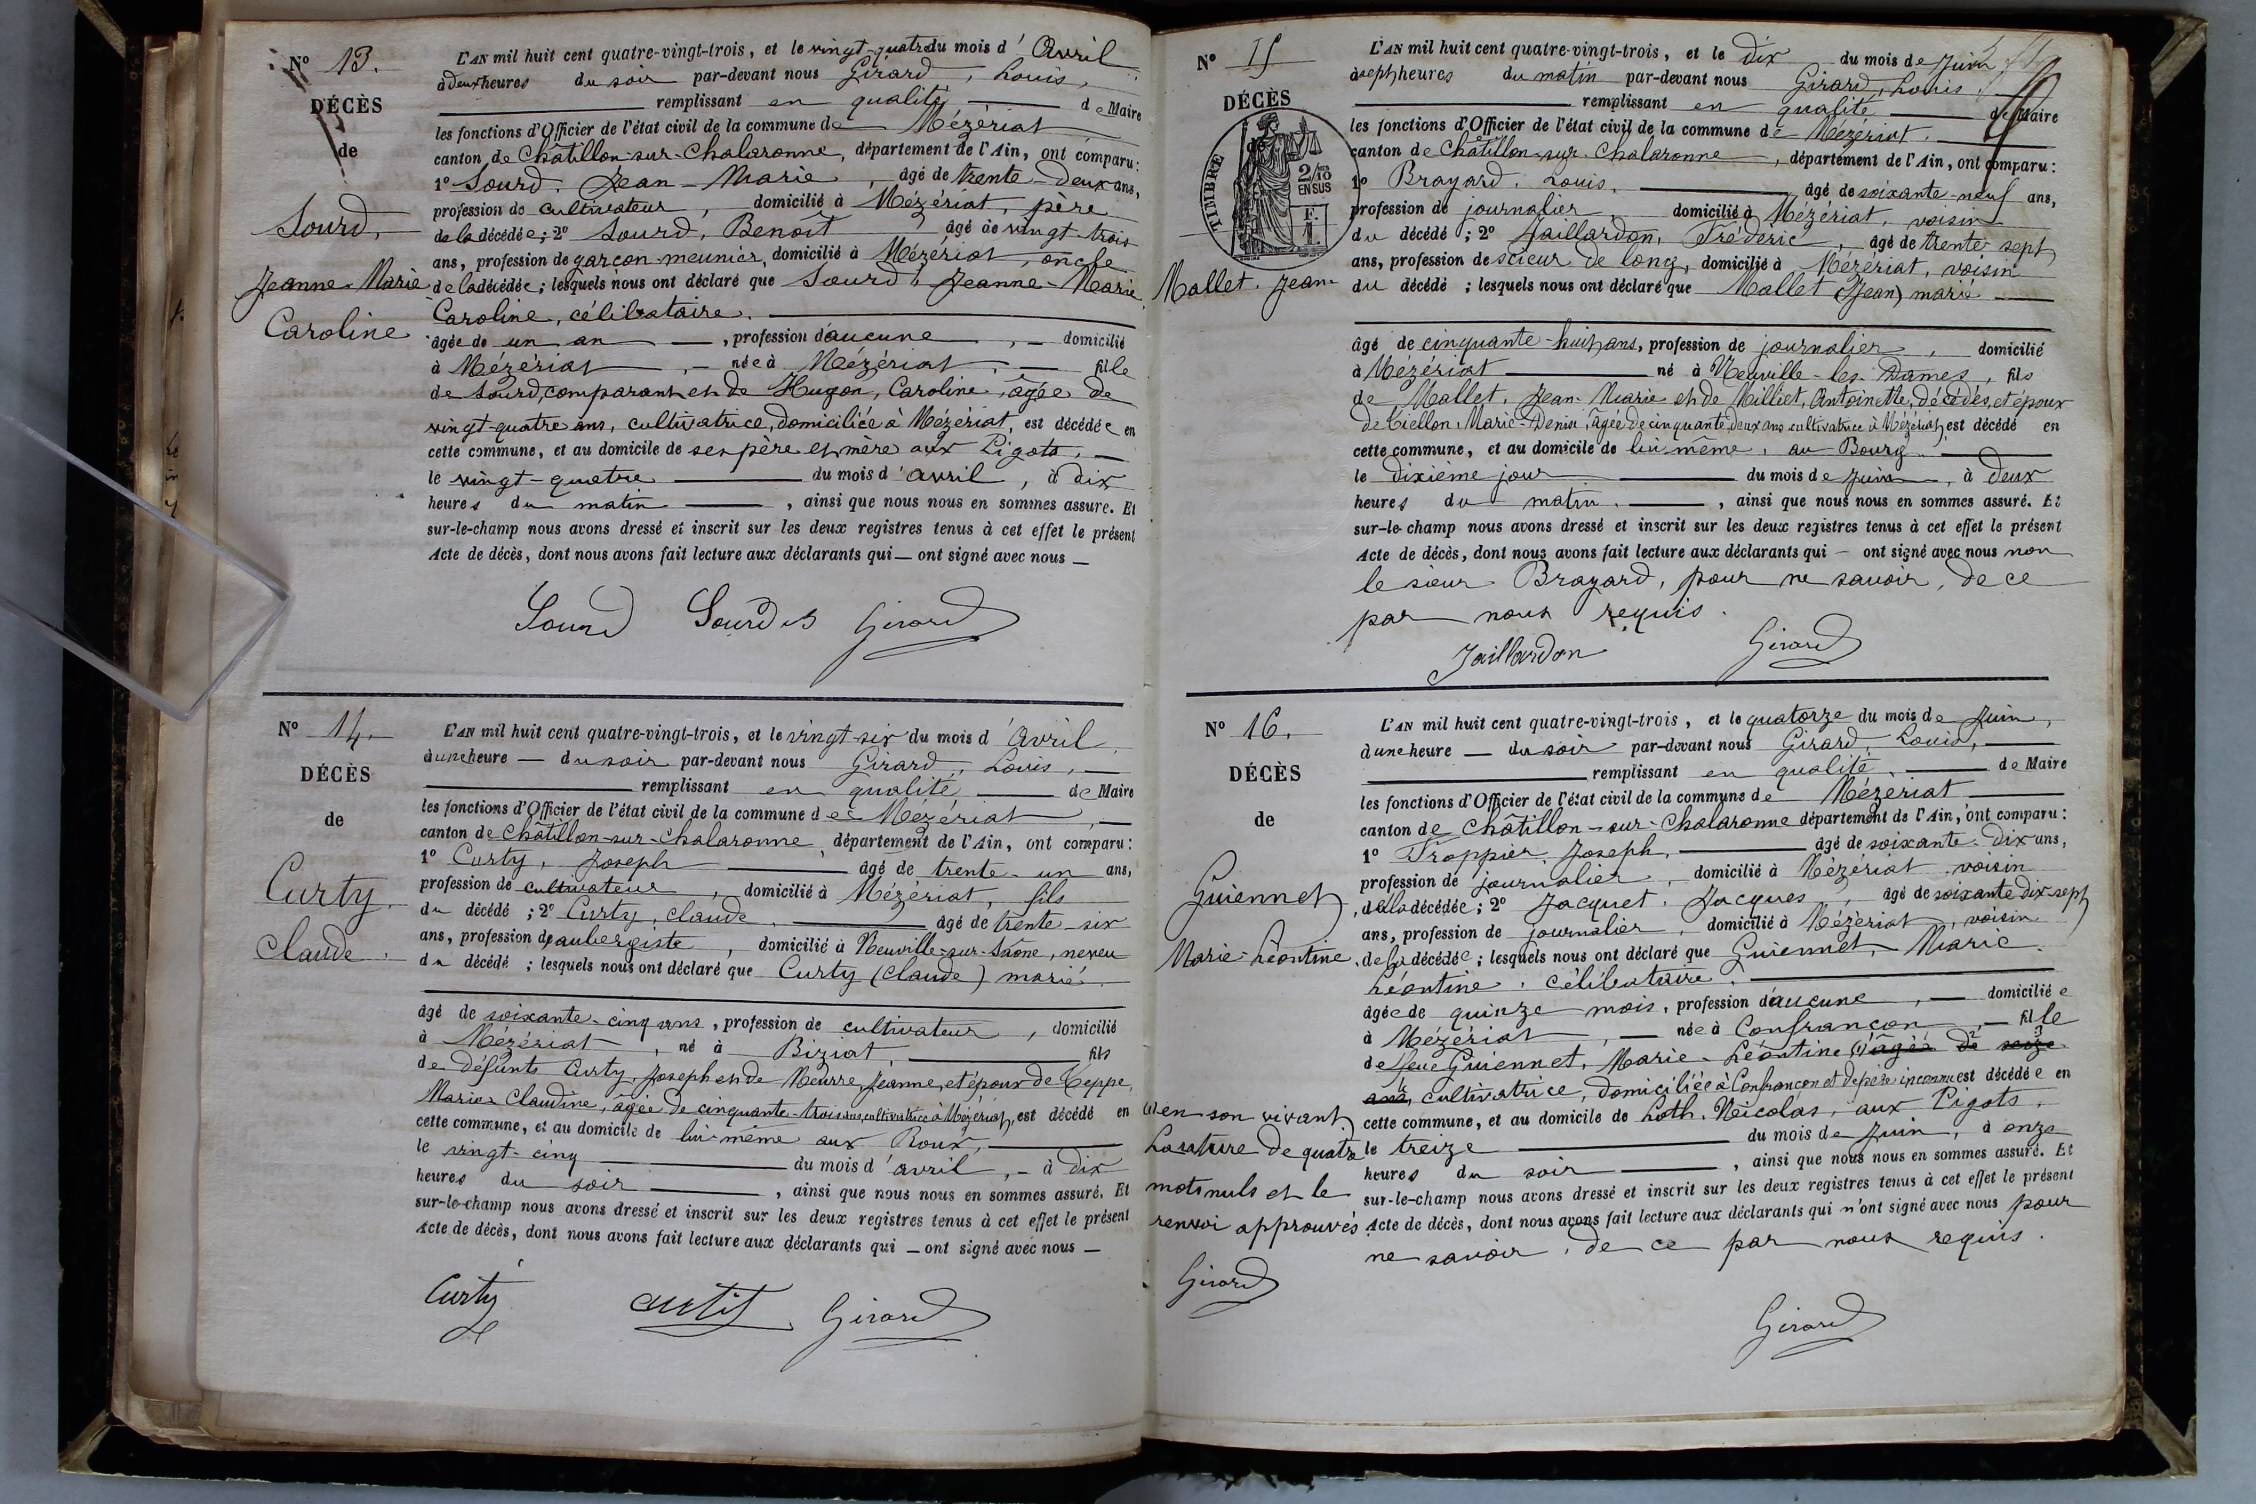 N° 13.
DÉCÈS
de
Sourd,
Jeanne-Marie
Caroline
L'AN mil huit cent quatre-vingt-trois, et le vingt-quatre du mois d'Avril
à deux heures du soir par-devant nous Girard, Louis,
remplissant en qualité de Maire
les fonctions d'Officier de l'état civil de la commune de Mézériat
canton de Châtillon-sur-Chalaronne, département de l'Ain, ont comparu :
1° Sourd, Jean-Marie, âgé de trente-deux ans,
profession de cultivateur, domicilié à Mézériat, père
de la décédée ; 2° Sourd, Benoît âgé de vingt-trois
ans, profession de garçon meunier, domicilié à Mézériat, oncle
de la décédée ; lesquels nous ont déclaré que Sourd, Jeanne-Marie
Caroline, célibataire.
âgée de un an, profession d'aucune, domicilié
à Mézériat, née à Mézériat, fille
de Sourd, comparant et de Hugon, Caroline, âgée de
vingt-quatre ans, cultivatrice, domiciliée à Mézériat, est décédée en
cette commune, et au domicile de ses père et mère aux Pigots,
le vingt-quatre du mois d'avril, à dix
heures du matin, ainsi que nous nous en sommes assuré. Et
sur-le-champ nous avons dressé et inscrit sur les deux registres tenus à cet effet le présent
Acte de décès, dont nous avons fait lecture aux déclarants qui — ont signé avec nous —
Sourd Sourd B Girard
N° 14.
DÉCÈS
de
Curty,
Claude.
L'AN mil huit cent quatre-vingt-trois, et le vingt-six du mois d'Avril,
à une heure — du soir par-devant nous Girard, Louis,
remplissant en qualité de Maire
les fonctions d'Officier de l'état civil de la commune de Mézériat,
canton de Châtillon-sur-Chalaronne, département de l'Ain, ont comparu :
1° Curty, Joseph âgé de trente-un ans,
profession de cultivateur, domicilié à Mézériat, fils
du décédé ; 2° Curty, Claude, âgé de trente-six
ans, profession d'aubergiste, domicilié à Neuville-sur-Saône, neveu
du décédé ; lesquels nous ont déclaré que Curty (Claude) marié.
âgé de soixante-cinq ans, profession de cultivateur, domicilié
à Mézériat, né à Biziat, fils
de défunts Curty, Joseph et de Meurre, Jeanne, et époux de Teppe,
Marie-Claudine, âgée de cinquante-trois ans, cultivatrice à Mézériat, est décédé en
cette commune, et au domicile de lui-même aux Roux,
le vingt-cinq du mois d'avril, — à dix
heures du soir, ainsi que nous nous en sommes assuré. Et
sur-le-champ nous avons dressé et inscrit sur les deux registres tenus à cet effet le présent
Acte de décès, dont nous avons fait lecture aux déclarants qui — ont signé avec nous —
Curty Girard
N° 15
DÉCÈS
TIMBRE
2/10
EN SUS
F.
1.
Mallet. Jean
L'AN mil huit cent quatre-vingt-trois, et le dix du mois de Juin,
à sept heures du matin par-devant nous Girard, Louis,
remplissant en qualité de Maire
les fonctions d'Officier de l'état civil de la commune de Mézériat.
canton de Châtillon-sur-Chalaronne, département de l'Ain, ont comparu :
1° Brayard, Louis, âgé de soixante-neuf ans,
profession de journalier domicilié à Mézériat, voisin
du décédé ; 2° Jaillardon, Frédéric, âgé de trente-sept
ans, profession de scieur de long, domicilié à Mézériat, voisin
du décédé ; lesquels nous ont déclaré que Mallet (Jean) marié
âgé de cinquante-huit ans, profession de journalier, domicilié
à Mézériat né à Neuville-les-Dames, fils
de Mallet, Jean-Marie et de Milliet, Antoinette, décédés, et époux
de Marie-Denise, âgée de cinquante-deux ans cultivatrice à Mézériat, est décédé en
cette commune, et au domicile de lui même, au Bourg
le dixième jour du mois de Juin, à deux
heures du matin, ainsi que nous nous en sommes assuré. Et
sur-le-champ nous avons dressé et inscrit sur les deux registres tenus à cet effet le présent
Acte de décès, dont nous avons fait lecture aux déclarants qui — ont signé avec nous non
le sieur Brayard, pour ne savoir, de ce
par nous requis.
Jaillardon Girard
N° 16.
DÉCÈS
de
Guiennet,
Marie-Léontine
L'AN mil huit cent quatre-vingt-trois, et le quatorze du mois de Juin,
à une heure — du soir par-devant nous Girard, Louis,
remplissant en qualité, de Maire
les fonctions d'Officier de l'état civil de la commune de Mézériat
canton de Châtillon-sur-Chalaronne département de l'Ain, ont comparu :
1° Froppier, Joseph, âgé de soixante-dix ans,
profession de journalier, domicilié à Mézériat, voisin
de la décédée ; 2° Jacquet, Jacques, âgé de soixante dix-sept
ans, profession de journalier, domicilié à Mézériat, voisin
de la décédée ; lesquels nous ont déclaré que Guiennet, Marie
Léontine, célibataire.
âgée de quinze mois, profession d'aucune, — domiciliée
à Mézériat, — née à Confrançon, — fille
de feue Guiennet, Marie-Léontine (1) âgée de seize
ans, cultivatrice, domiciliée à Confrançon et de père inconnu est décédée en
cette commune, et au domicile de Loth, Nicolas, aux Pigots,
le treize du mois de Juin, à onze
heures du soir, ainsi que nous nous en sommes assuré. Et
sur-le-champ nous avons dressé et inscrit sur les deux registres tenus à cet effet le présent
Acte de décès, dont nous avons fait lecture aux déclarants qui n'ont signé avec nous pour
ne savoir, de ce par nous requis.
(1) en son vivant,
La rature de quatre
mots nuls et le
renvoi approuvés
Girard
Girard